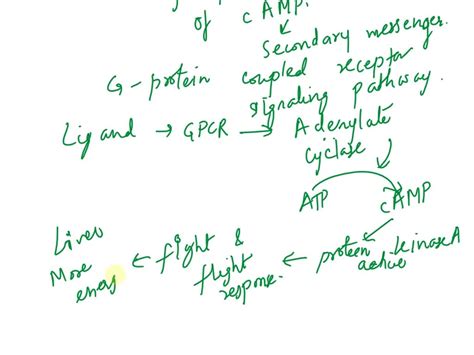 of cAMP.
Secondary messenger.
G-protein coupled receptor
signaling pathway.
Ligand → GPCR → Adenylate
cyclase
ATP cAMP
protein kinase A
active
← fight &
flight
response. ←
Liver
More